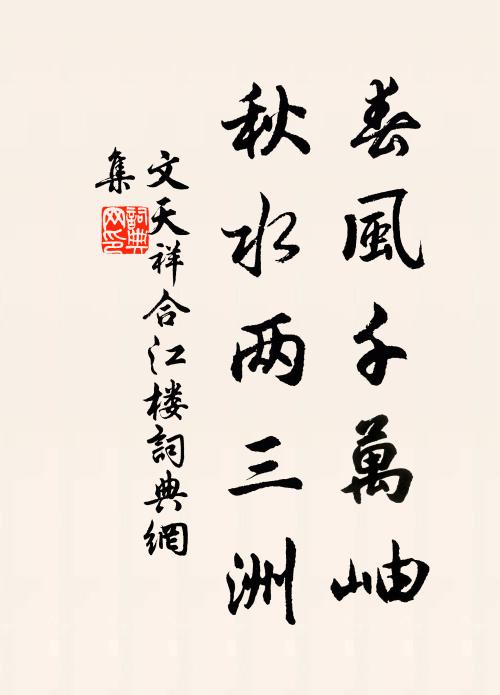 春風千萬岫
秋水两三洲
文天祥合江楼詞典網
集
詞典网印